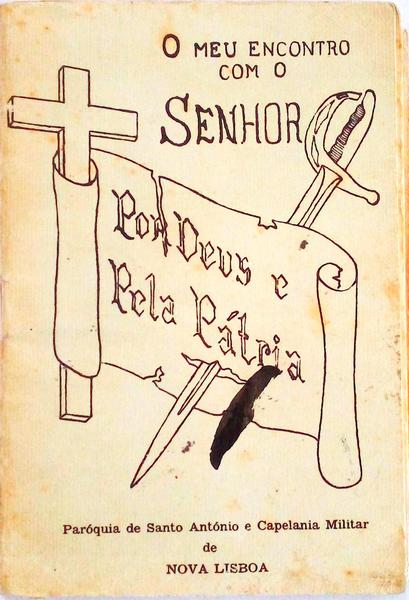 O MEU ENCONTRO
COM O
SENHOR
Por Deus e
Pela Pátria
Paróquia de Santo António e Capelania Militar
de
NOVA LISBOA